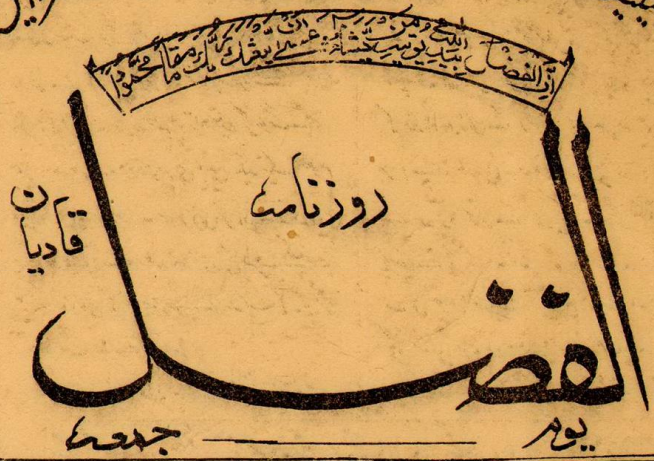 ان الفضل بيد الله يؤتيه من يشاء عسى ان يبعثك ربك مقاما محمودا
روزنامہ
قادیان
الفضل
یوم ــــــ جمعہ